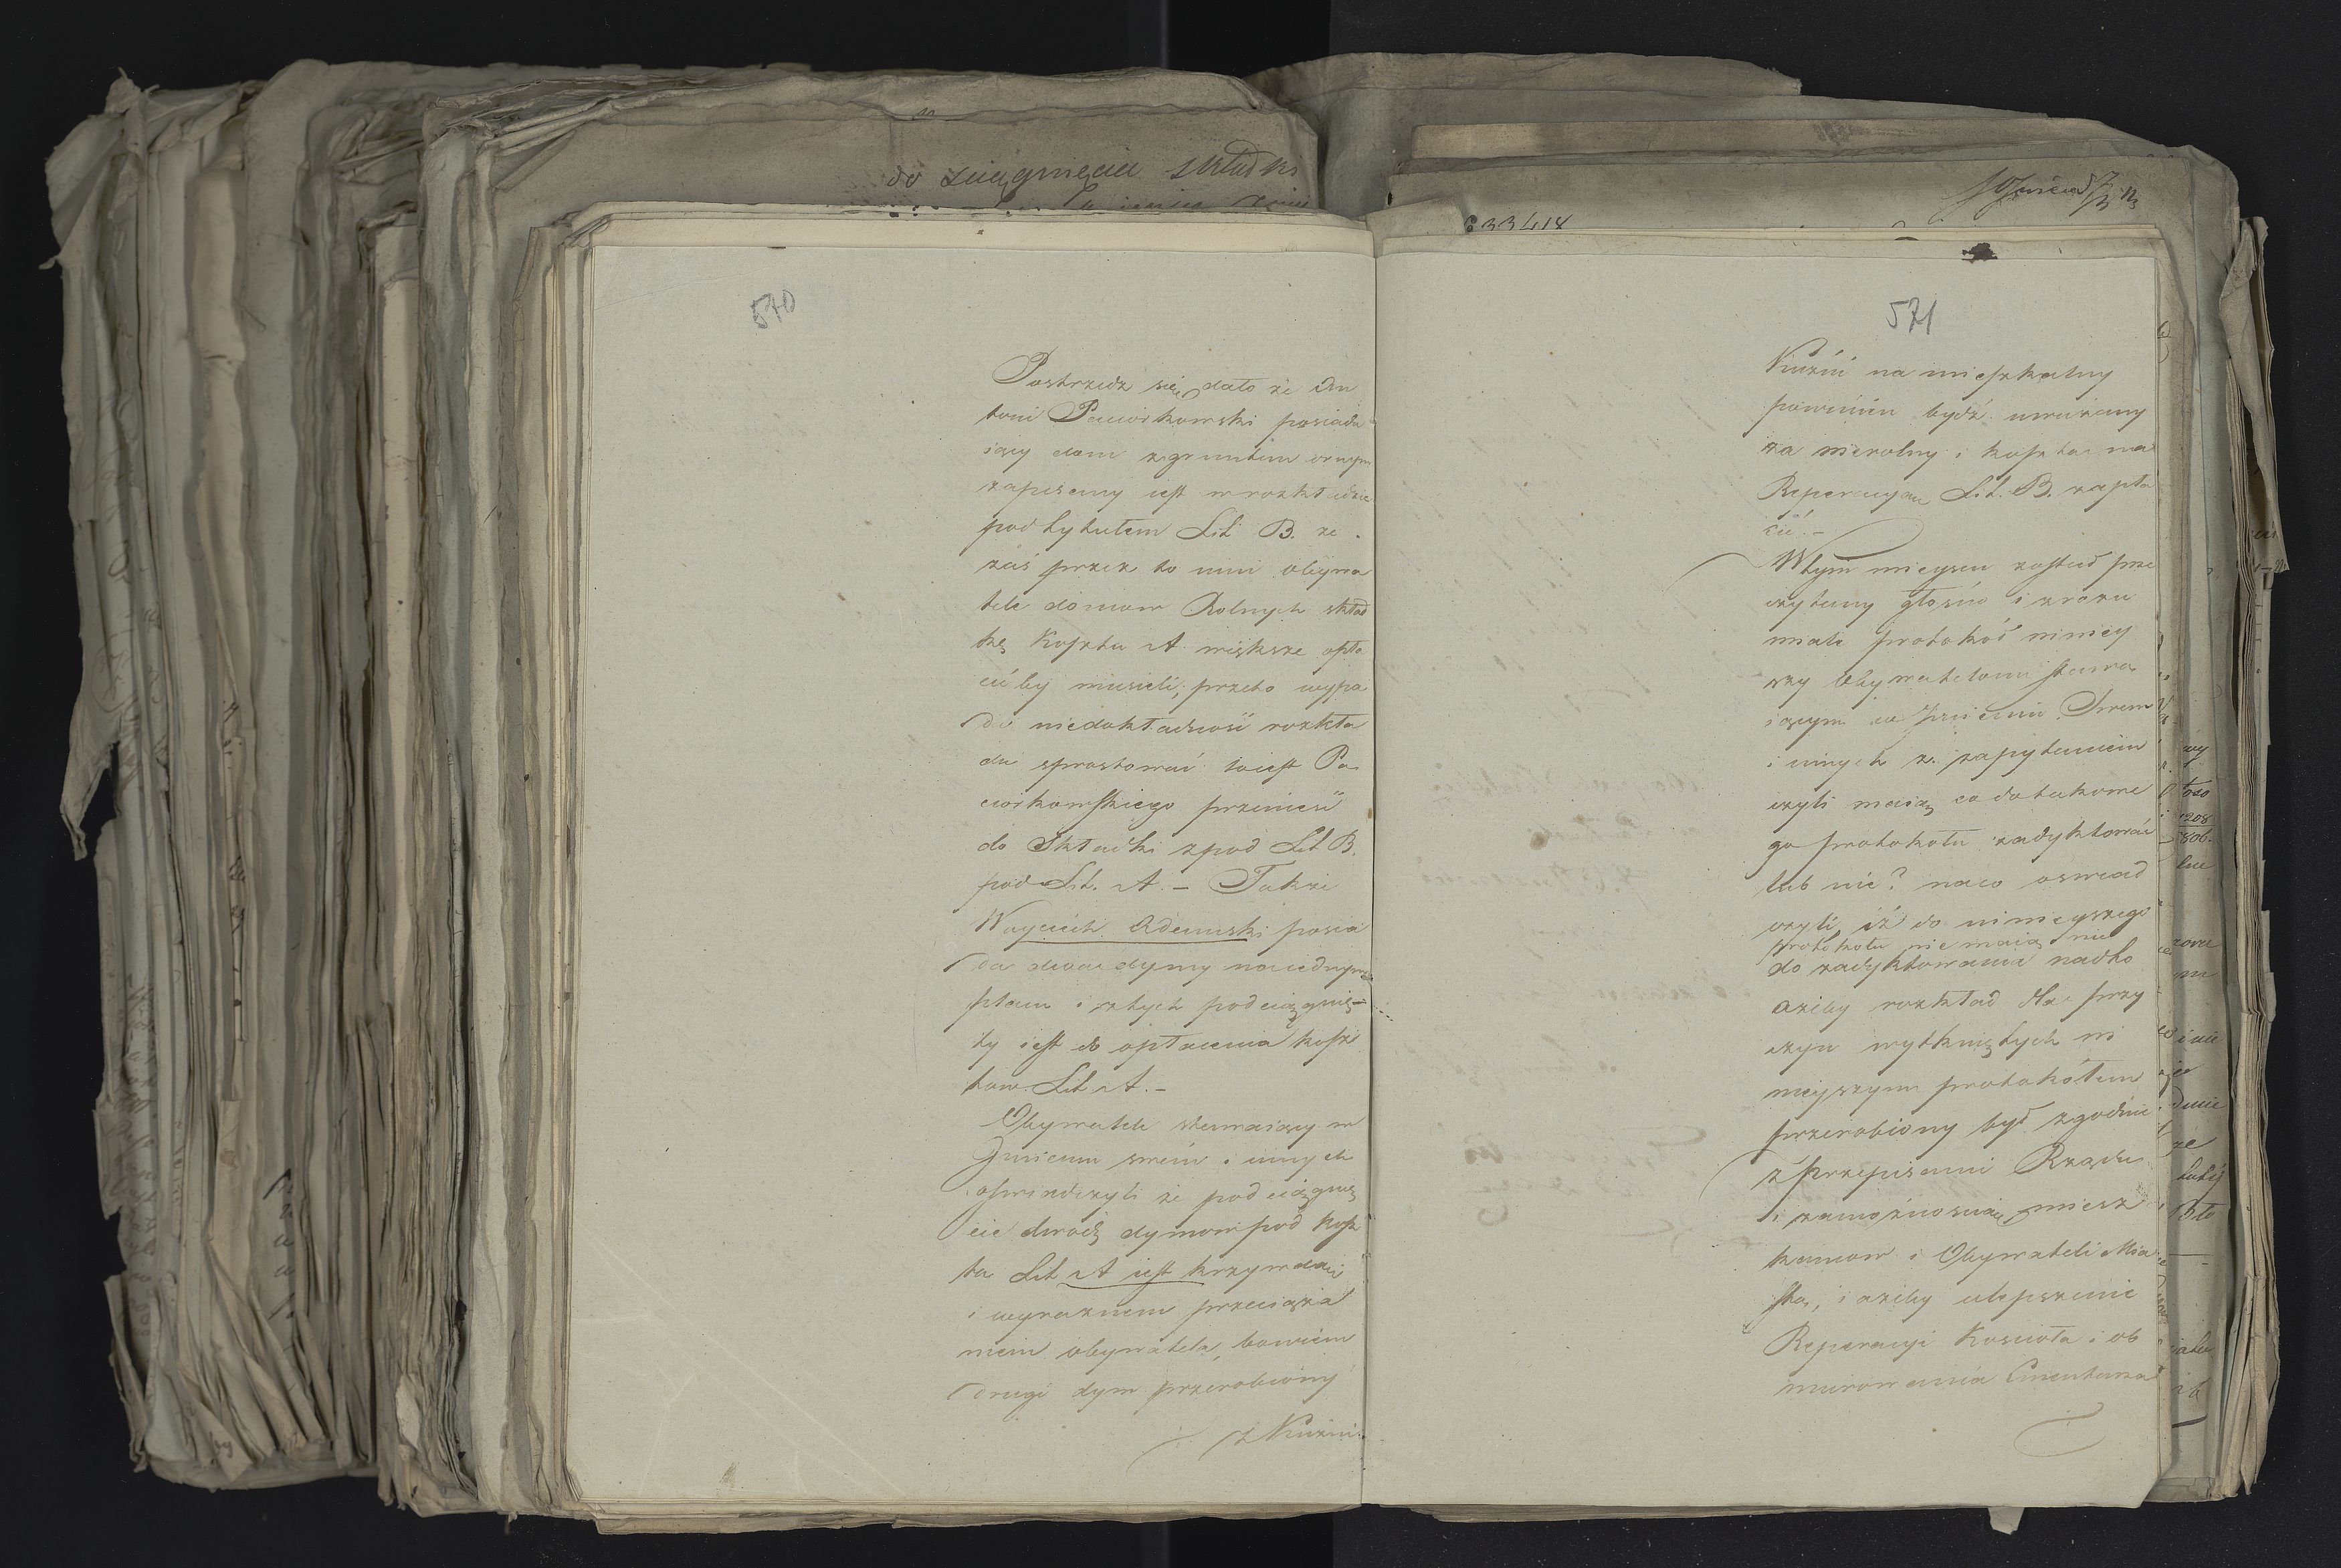 do sciągnięcia składki
33418
570
Postrzedz się dało że An
toni Paciorkowski posiada
iący dom z gruntem ornym
zapisany iest w rozkładzie
pod tytułem Lit B. że
zaś przez to inni obywa
tele domow Rolnych skład
kę Koszta A większe opła
cić by musieli, przeto wypa
da niedokładność rozkła
du sprostować to iest Pa
ciorkowskiego przenieść
do Składki z pod Lit B.
pod Lit. A. – Także
Woyciech Adamski posia
da dwa dymy na iednym
placu i z tych podciągnię-
ty iest do opłacenia kosz
tow Lit A. –
Obywatele stawaiący w
Imieniu swem i innych
oświadczyli że podciągnię
cie dwoch dymow pod kosz
ta Lit A iest krzywdą
i wyraznem przeciąże
niem obywatela, bowiem
drugi dym przerobiony
z Kuźni
571
Kuźni na mieszkalny
powinien bydź uważany
za nierolny i koszta na
Reperacyą Lit. B. zapła
cić. –
W tym mieyscu został prze
czytany głośno i zrozu
miale protokoł niniey
szy Obywatelom stawa
iącym w Imieniu Swem
i innych z zapytaniem
czyli maią co do takowe
go protokołu zadyktować
lub nie? na co oswiad
czyli, iż do ninieyszego
protokołu nie maią nic
do zadyktowania nadto
ażeby rozkład dla przy
czyn wytkniętych ni
nieyszym protokółem
przerobiony był zgodnie
z Przepisami Rządu
i zamożnością miesz
kancow i Obywateli Mia
sta, i ażeby ulepszenie
Reperacyi Kościoła i ob
murowania Cmentarza